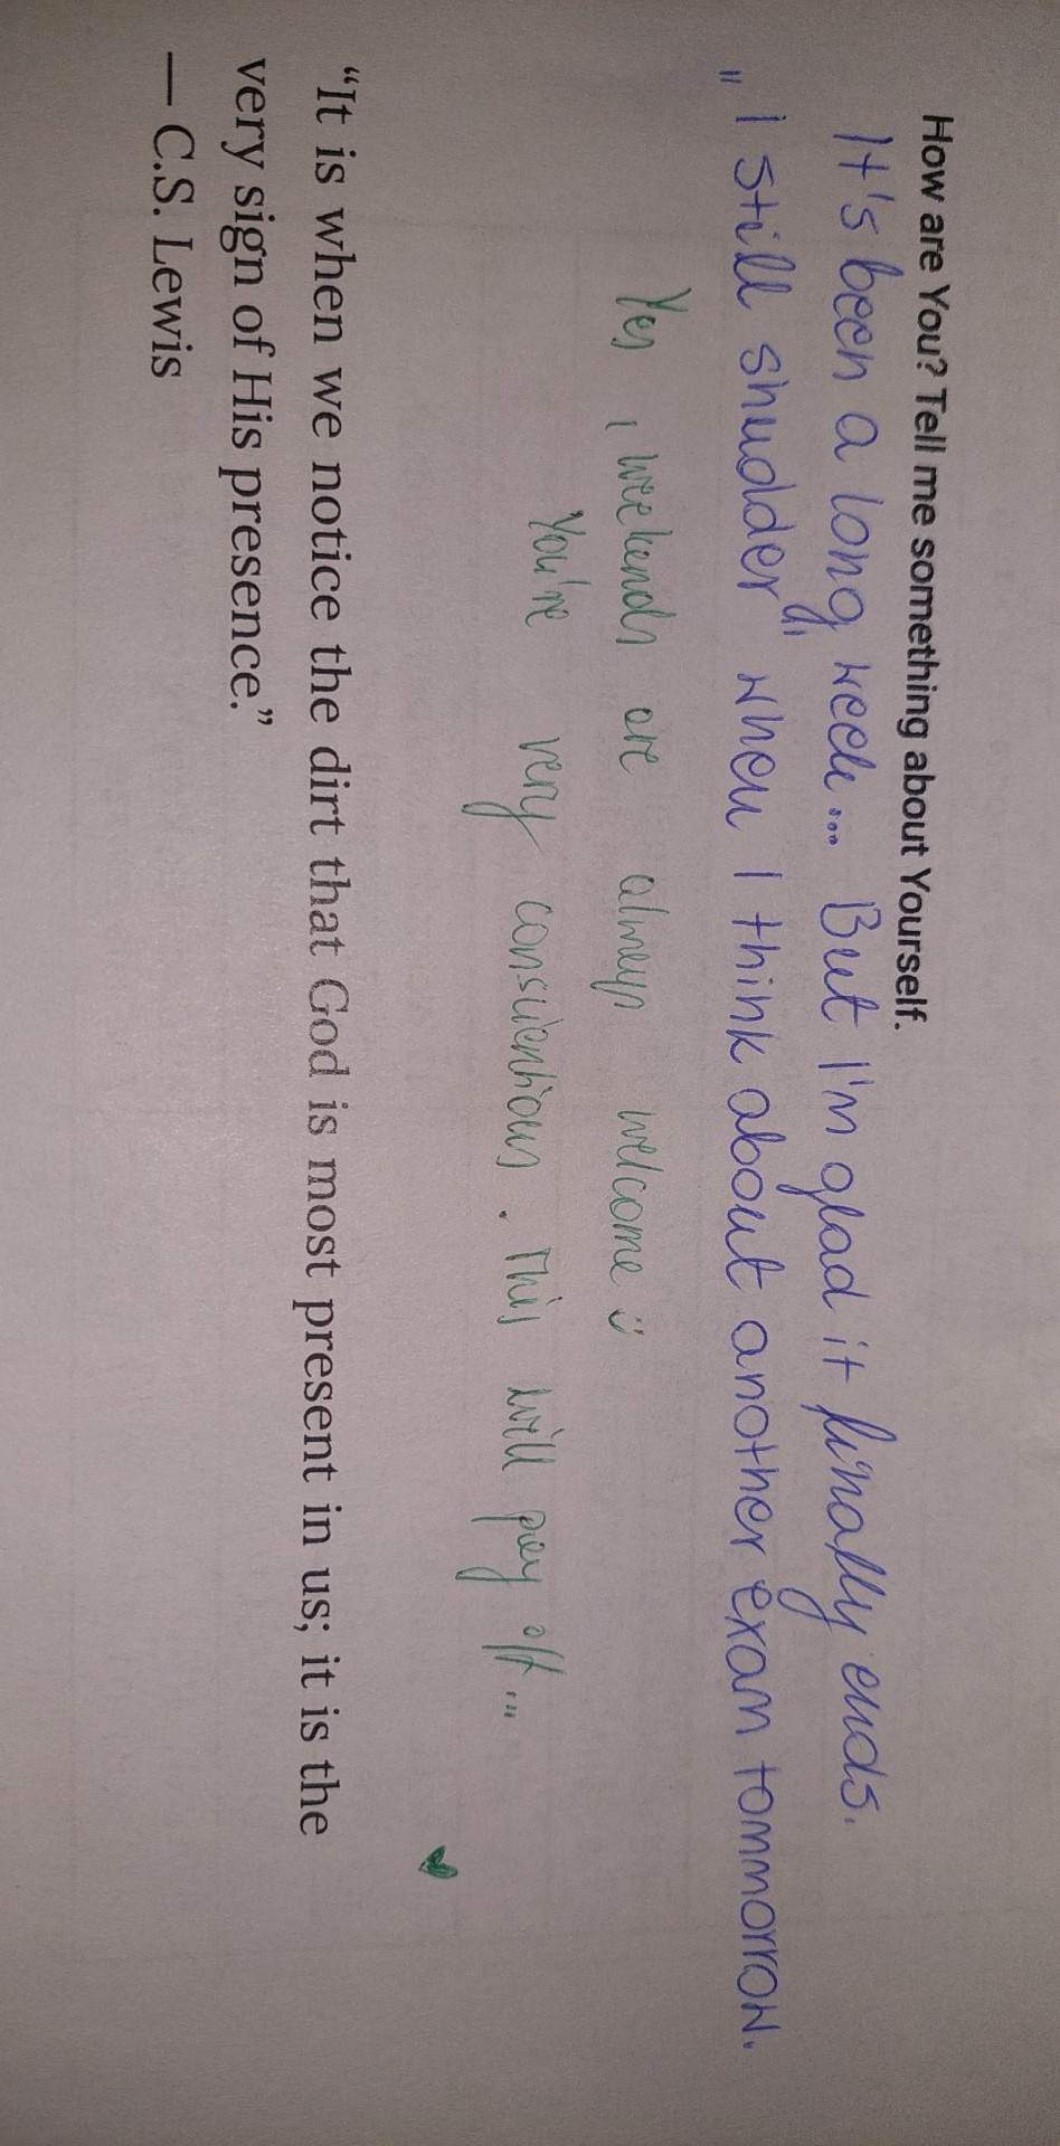 How are You? Tell me something about Yourself.
It's been a long week... But I'm glad it finally ends.
„I still shudder" when I think about another exam tommorrow.
Yes, weekends are always welcome :)
You're very conscientious. This will pay off...
“It is when we notice the dirt that God is most present in us; it is the
very sign of His presence.”
— C.S. Lewis